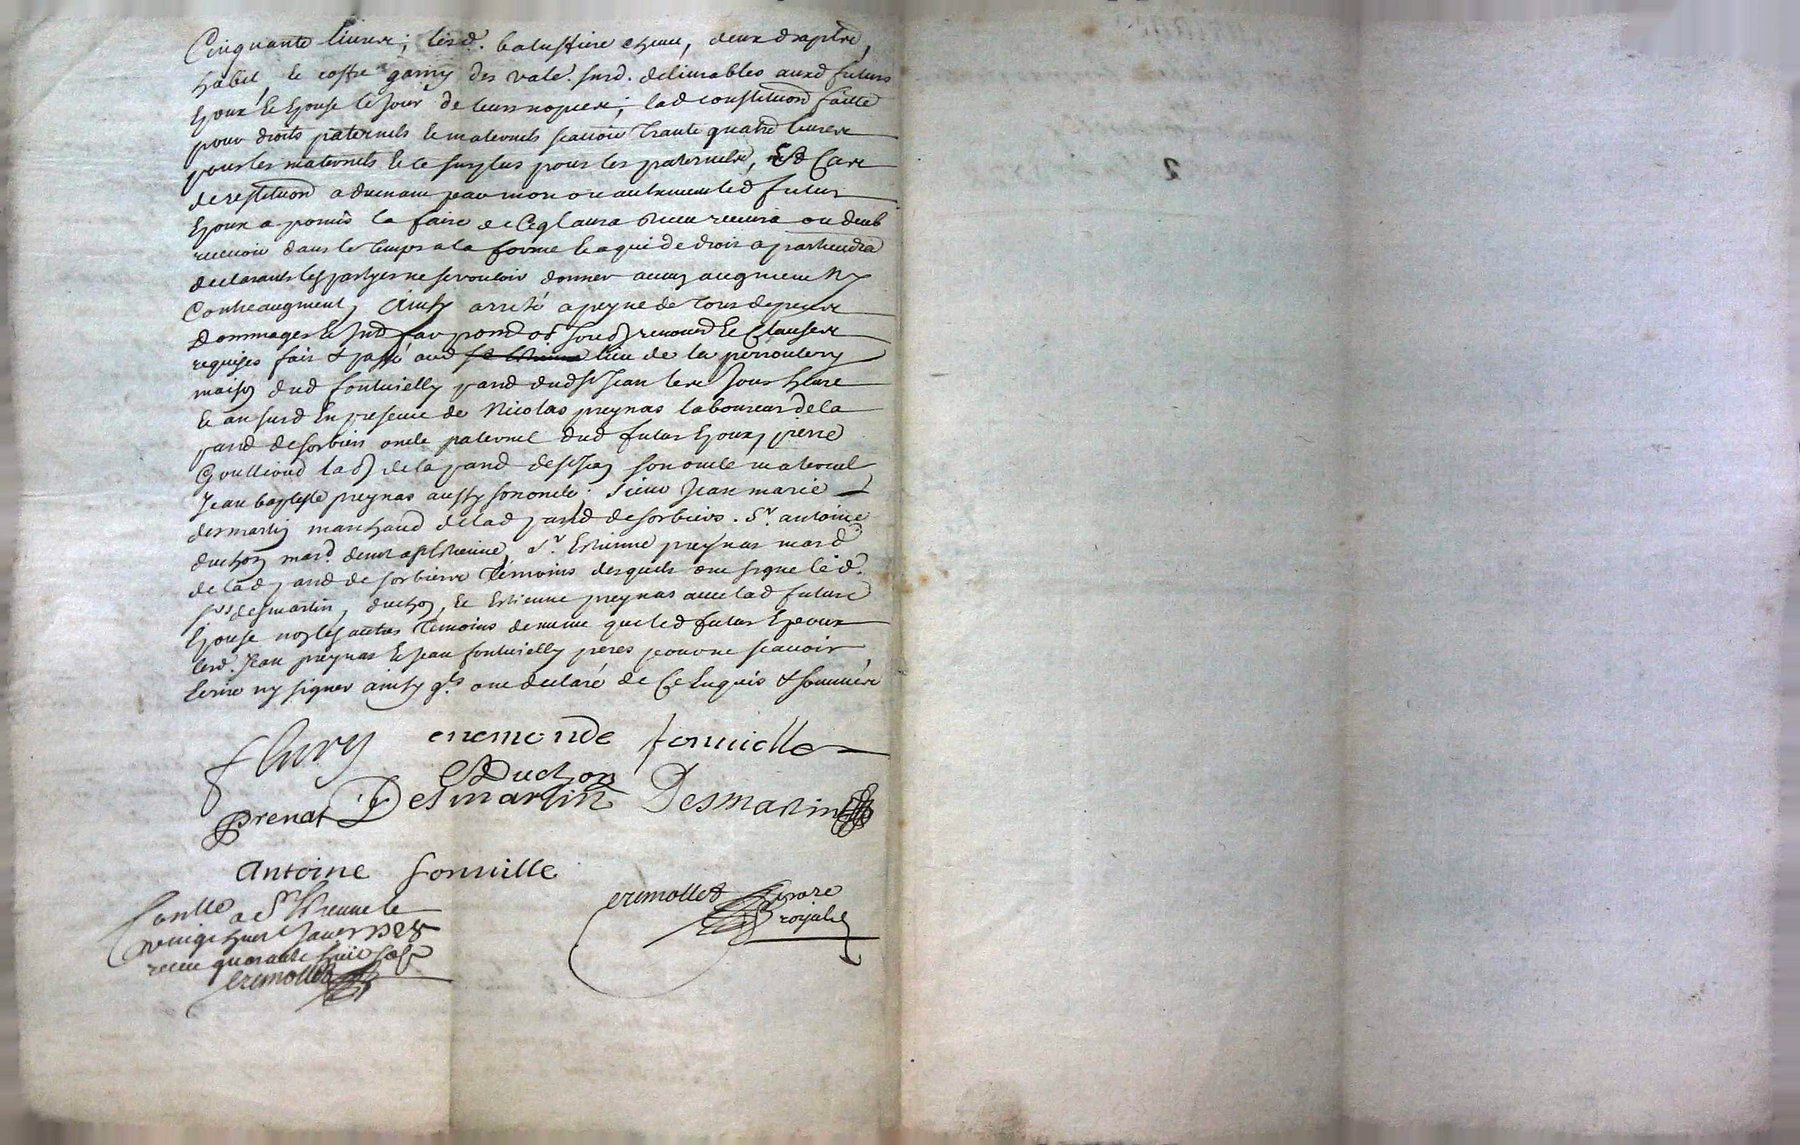 Cinquante livres; lesd. balustiere chene, deux draps led.
habit, le coffre garny des vale. surd. delivrables auxd futurs
Epoux Et Epouse le jour de leurs nopces; lad constitution faitte
pour droits paternels Et maternels scavoir trante quatre livres
pour les maternels Et le surplus pour les paternels, Et Cas
de restitution advenant par mort ou autrement led futur
Epoux a promis la faire de Ce qu'il aura receu recevra ou deub
recevoir dans le temps a la forme Et a qui de droit apartiendra
declarants les partyes ne se vouloir donner aucun augment Ny
Contreaugment, Ainsy arreté a peyne de tous depens
Dommages Et Int
requises fait & passé aud lieu de la perrotiery
maison dud fontvielly parr. dud St Jean les Jour
Et an surd En presence de Nicolas preynas laboureur de la
parr. de sorbiers oncle paternel dud futur Epoux, pierre
de la parr. de St Jean son oncle maternel
Jean baptiste preynas aussy son oncle; sieur Jean marie
desmartin marchand de lad parr. de sorbiers. Sr. antoine
duchon mard. demt a St Estienne, Sr. Estienne preynas mard
de lad parr. de sorbiers Témoins desquels ont signé led.
srs desmartin, duchon, Et Estienne preynas avec lad future
Epouse non les autres Témoins de meme que led futur Epoux
lesd. Jean preynas Et Jean fontvielly peres pour ne scavoir
Ecrire ny signer ainsy qls ont declaré de Ce Enquis & sommés
fleury enemonde fonvielle
Duchon
Prenat Desmartin Desmartin
antoine fonville
Conllé a St Etienne le
vingt huit
receu quarante huit sols
eremollet
eremollet Nore
royal